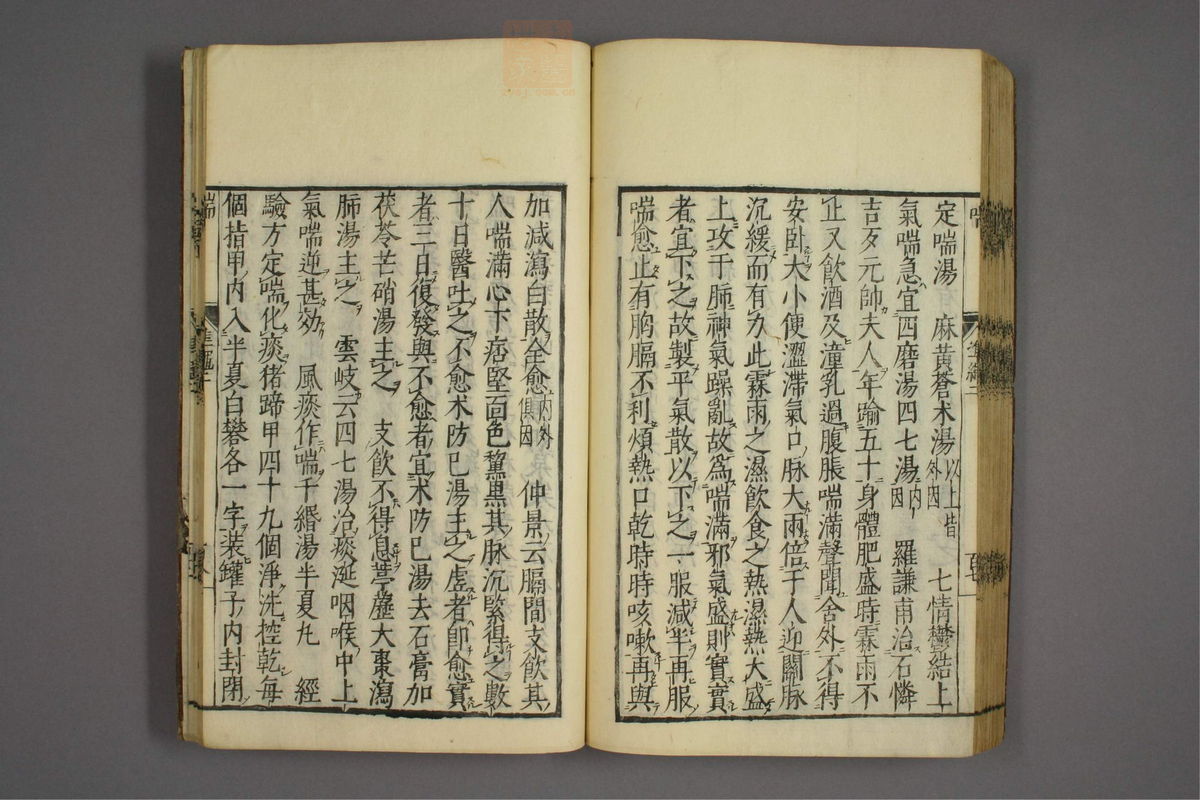 定喘湯　麻黄蒼术湯以上皆外因　七情鬱結上
氣喘急宜四磨湯四七湯内因　羅謙甫治石憐
吉歹元帥夫人年踰五十身體肥盛時霖雨不
止又飲酒及潼乳過腹脹喘滿聲聞舍外不得
安卧大小便澀滯氣口脉大兩倍于人迎關脉
沉緩而有力此霖雨之濕飲食之熱濕熱大盛
上攻于肺神氣躁亂故爲喘滿邪氣盛則實實
者宜下之故製平氣散以下之一服減半再服
喘愈止有胸膈不利煩熱口乾時時咳嗽再與
加減瀉白散全愈内外俱因　仲景云膈間支飲其
人喘滿心下痞堅面色黧黒其脉沉緊得之數
十日醫吐之不愈木防已湯主之虚者即愈實
者三日復發與不愈者宜术防已湯去石膏加
茯苓芒硝湯主之　支飲不得息葶藶大棗瀉
肺湯主之　雲岐云四七湯治痰涎咽喉中上
氣喘逆甚効　風痰作喘千緡湯半夏丸　經
驗方定喘化痰猪蹄甲四十九個淨洗控乾毎
個指甲内入半夏白礬各一字装罐子内封閉
喘